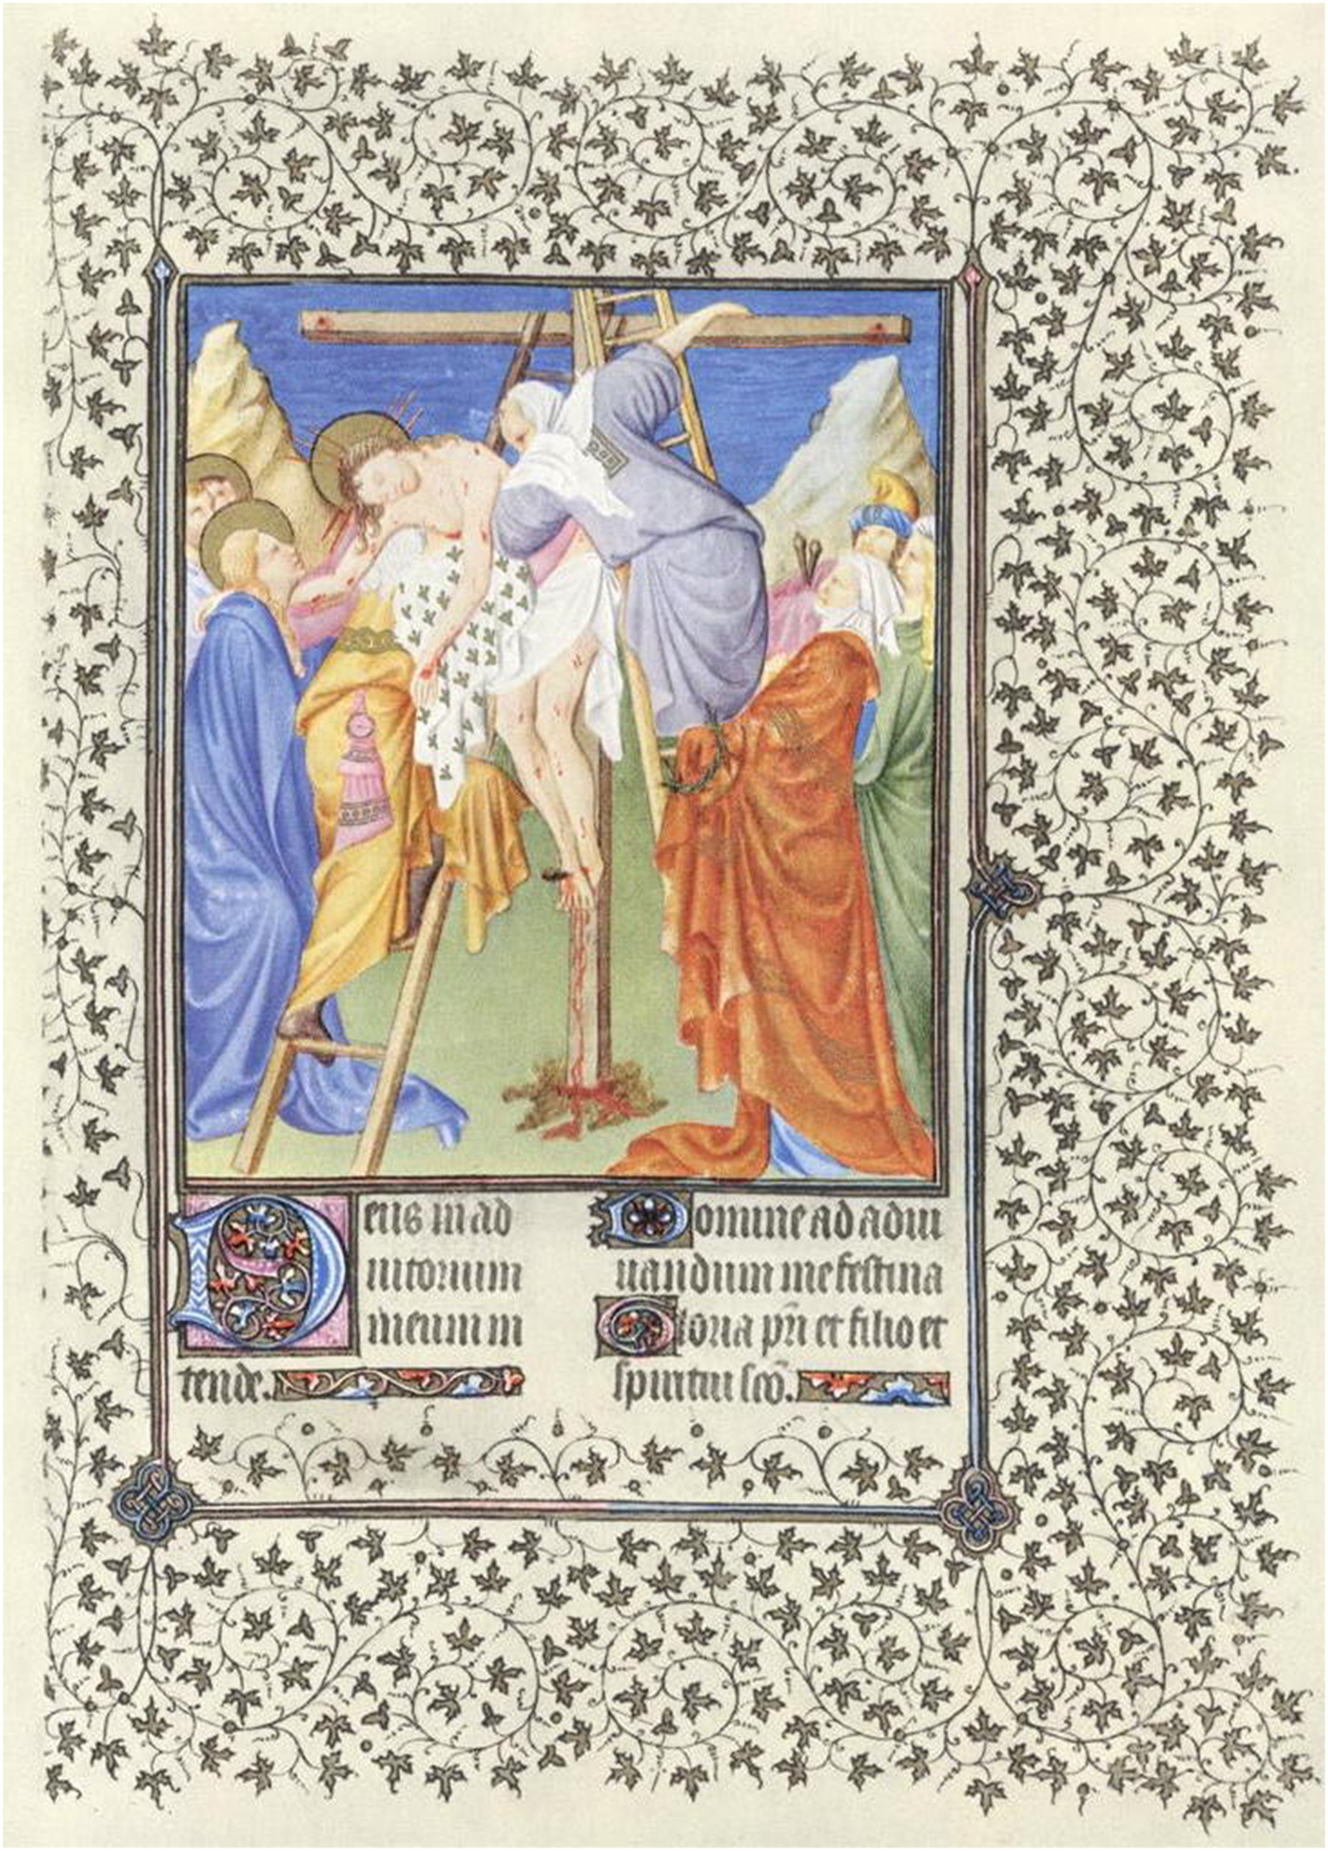 Deus in ad
iutorium
meum in
tende.
Domine ad adiu
uandum me festina
Gloria pr̄i et filio et
spiritui sc̄o.